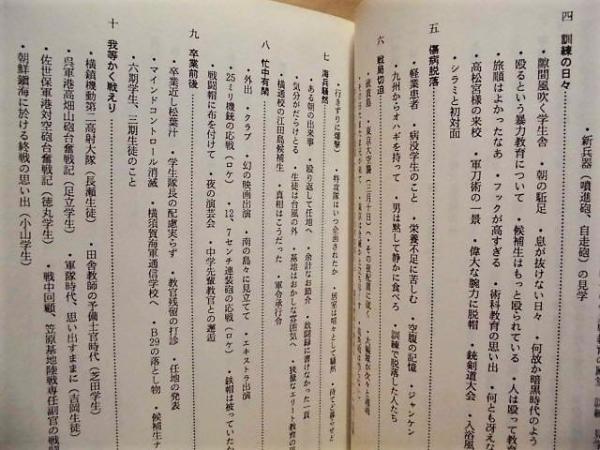 ・新兵器（噴進砲、自走砲）の見学
四 訓練の日々
・隙間風吹く学生舎 ・朝の駈足 ・息が抜けない日々 ・何故か暗黒時代のよう
・殴るという暴力教育について ・候補生はもっと殴られている ・人は殴って教育
・旅順はよかったなあ ・フックが高すぎる ・術科教育の思い出 ・何とも冴えな
・高松宮様の来校 ・軍刀術の一景 ・偉大な腕力に脱帽 ・銃剣道大会 ・入浴風
・シラミと初対面
五 傷病脱落
・軽業患者 ・病没学生のこと ・栄養不足に苦しむ ・空腹の記憶 ・ジャンケン
・九州からオハギを持って ・男は黙して静かに食べろ ・訓練で脱落した人たち
六 戦局切迫
・硫黄島 ・東京大空襲（三月十日）
七 海兵騒然
・ある朝の出来事 ・殴り返して任地へ ・余計なお節介 ・敢闘録に書けなかった一頁
・気分がだらけとる ・生徒は台風の外 ・基地はおかしな雰囲気へ ・狭量なエリート教育の
・横通校の江田島候補生 ・真相はこうだった ・軍令承行令
八 忙中有閑
・外出 ・クラブ ・幻の映画出演 ・南の島々に見立てて ・エキストラ出演
・25ミリ機銃の応戦（ロケ） ・12、7センチ連装砲の応戦（ロケ） ・鉄帽は被っていたか
・戦闘帽に布を付けて ・夜の演芸会 ・中学先輩教官との邂逅
九 卒業前後
・卒業近し松葉汁 ・学生隊長の配慮実らず ・教官残留の打診 ・任地の発表
・マインドコントロール消滅 ・横須賀海軍通信学校へ ・B29の落とし物 ・候補生ナ
・六期学生、三期生徒のこと
十 我等かく戦えり
・横鎮機動第二高射大隊（長瀬生徒） ・田舎教師の予備士官時代（芝田学生）
・呉軍港高畑山砲台奮戦記（足立学生） ・軍隊時代、思い出すままに（吉岡生徒）
・佐世保軍港対空砲台奮戦記（徳丸学生） ・戦中回顧、笠原基地陸戦専任副官の戦
・朝鮮鎮海に於ける終戦の思い出（小山学生）